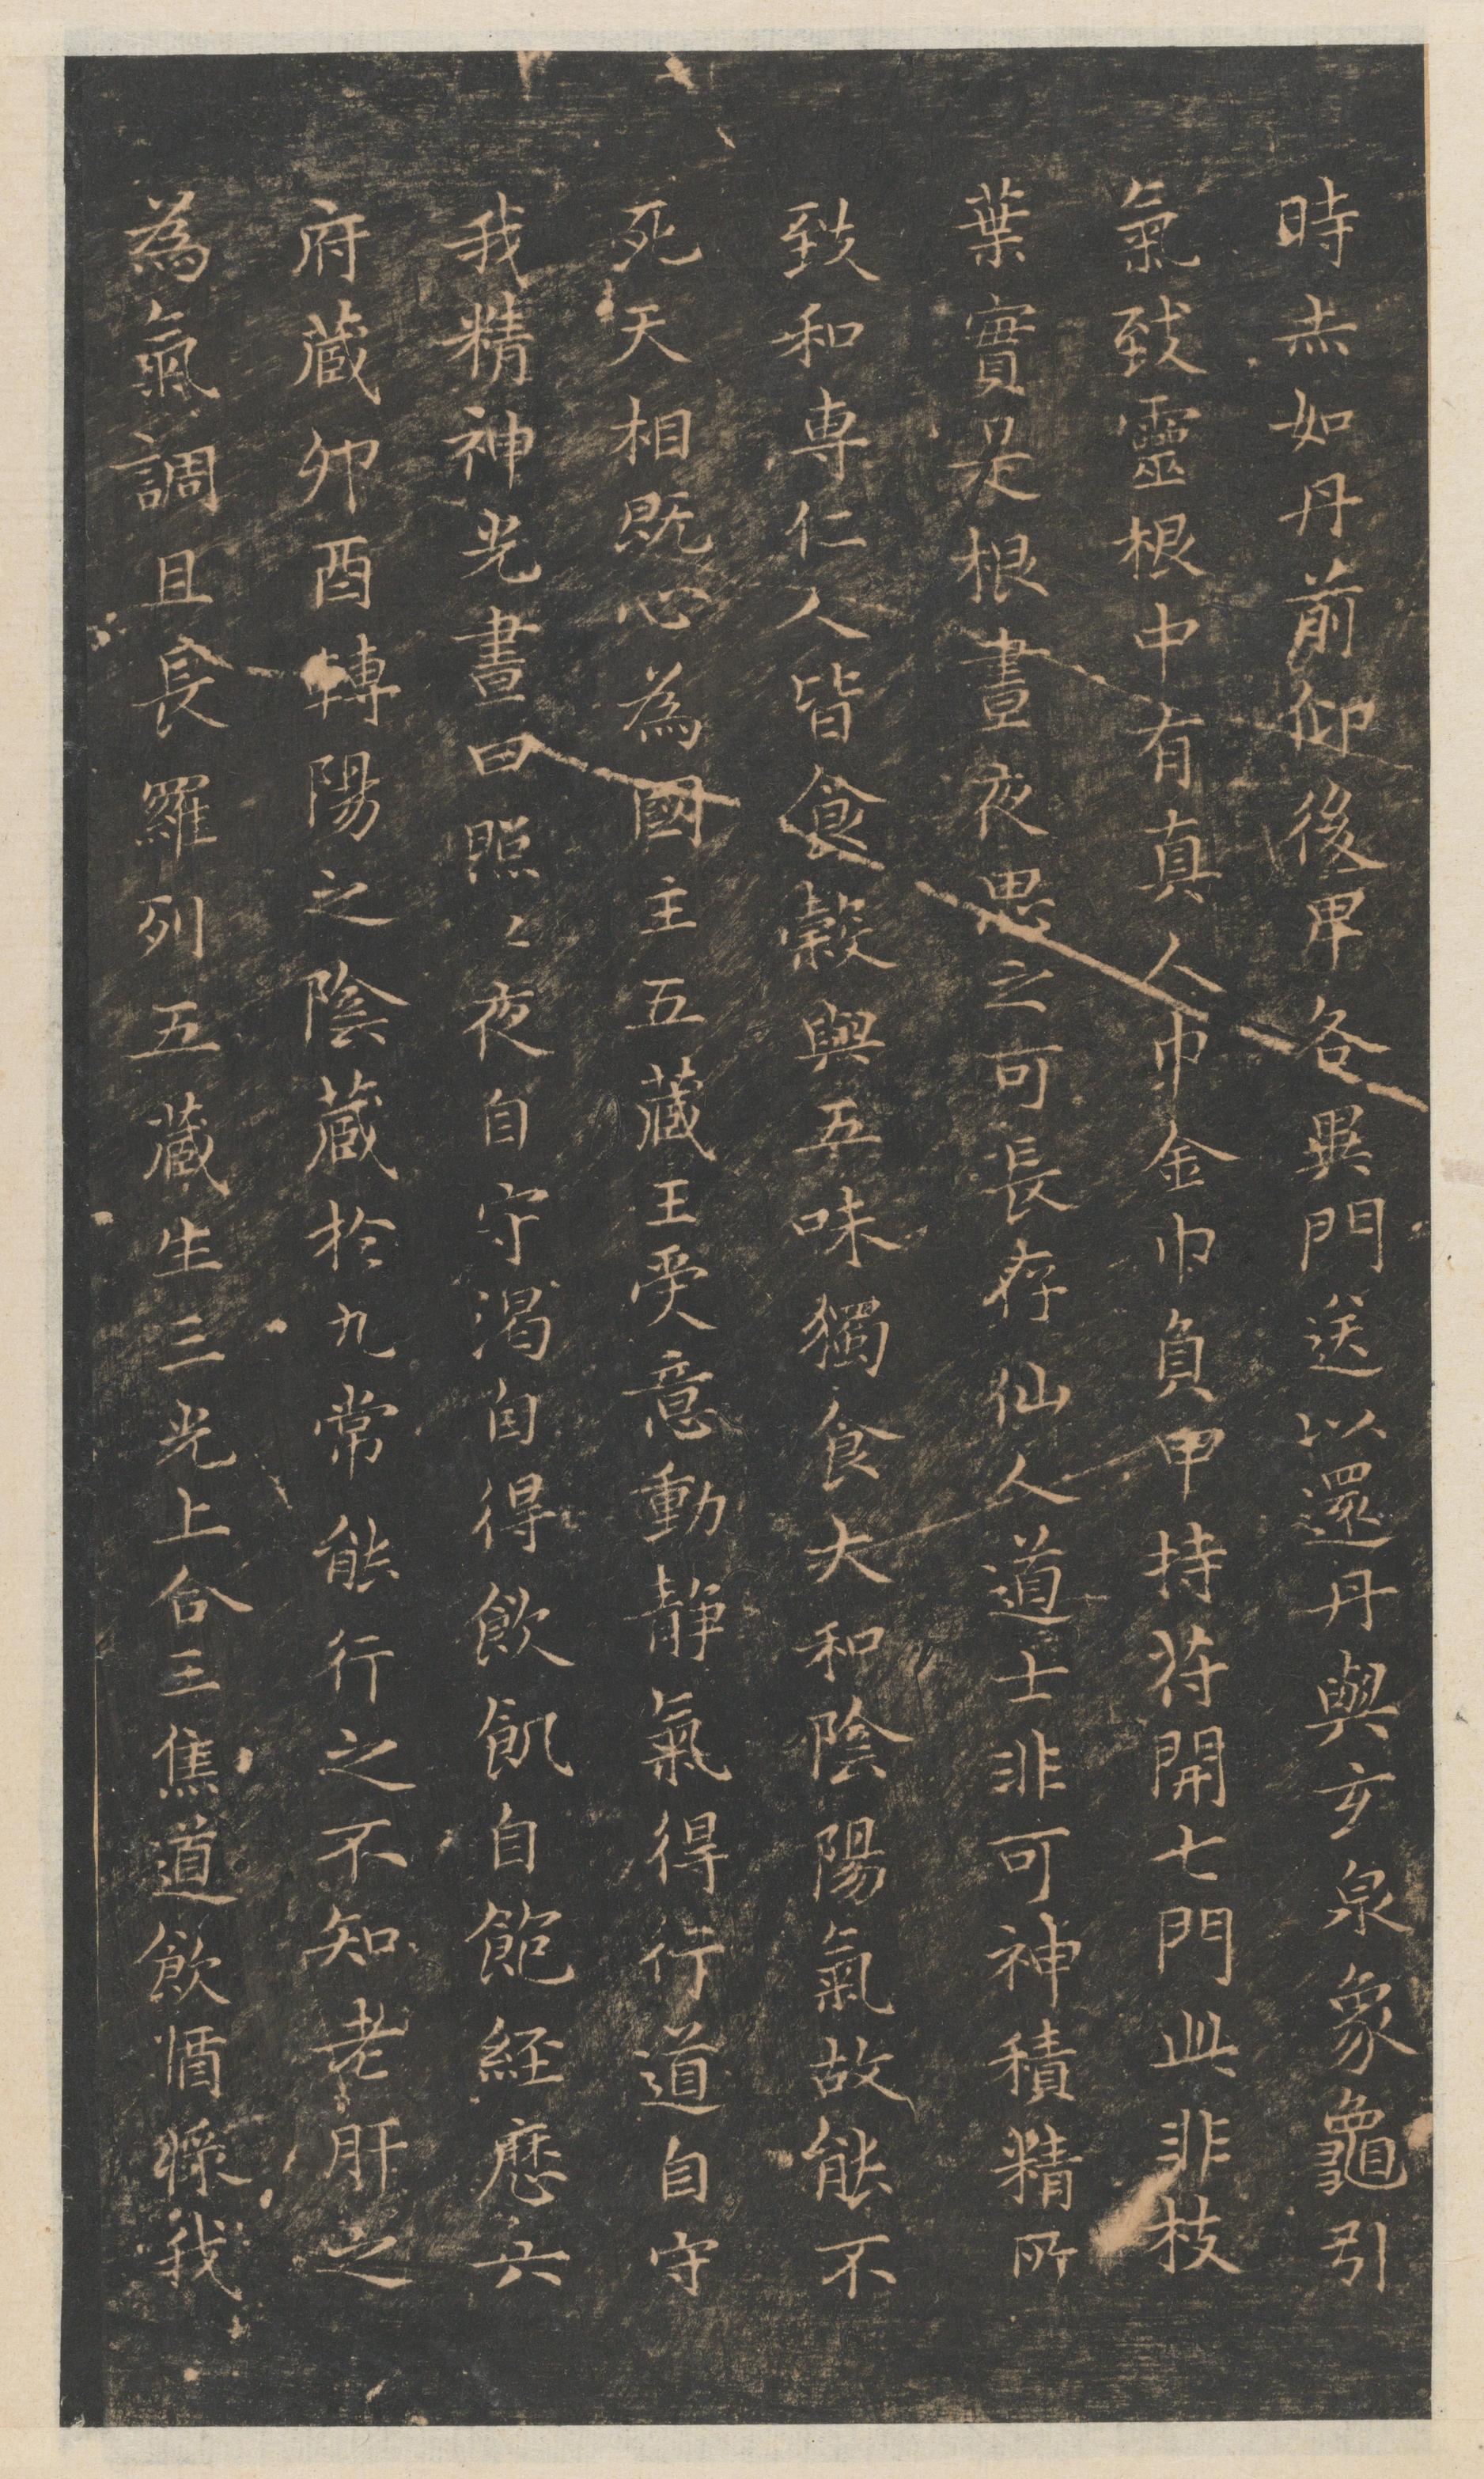 時赤如丹前仰後卑各異門送以還丹與玄泉象龜引
氣致靈根中有真人巾金巾負甲持苻開七門此非枝
葉實是根晝夜思之可長存仙人道士非可神積精所
致和専仁人皆食穀與五味獨食大和陰陽氣故能不
死天相既心為國主五藏王受意動静氣得行道自守
我精神光晝日照〻夜自守渴自得飲飢自飽經歷六
府藏卯酉轉陽之陰藏於九常能行之不知老肝之
為氣調且長羅列五藏生三光上合三焦道飲醬漿我